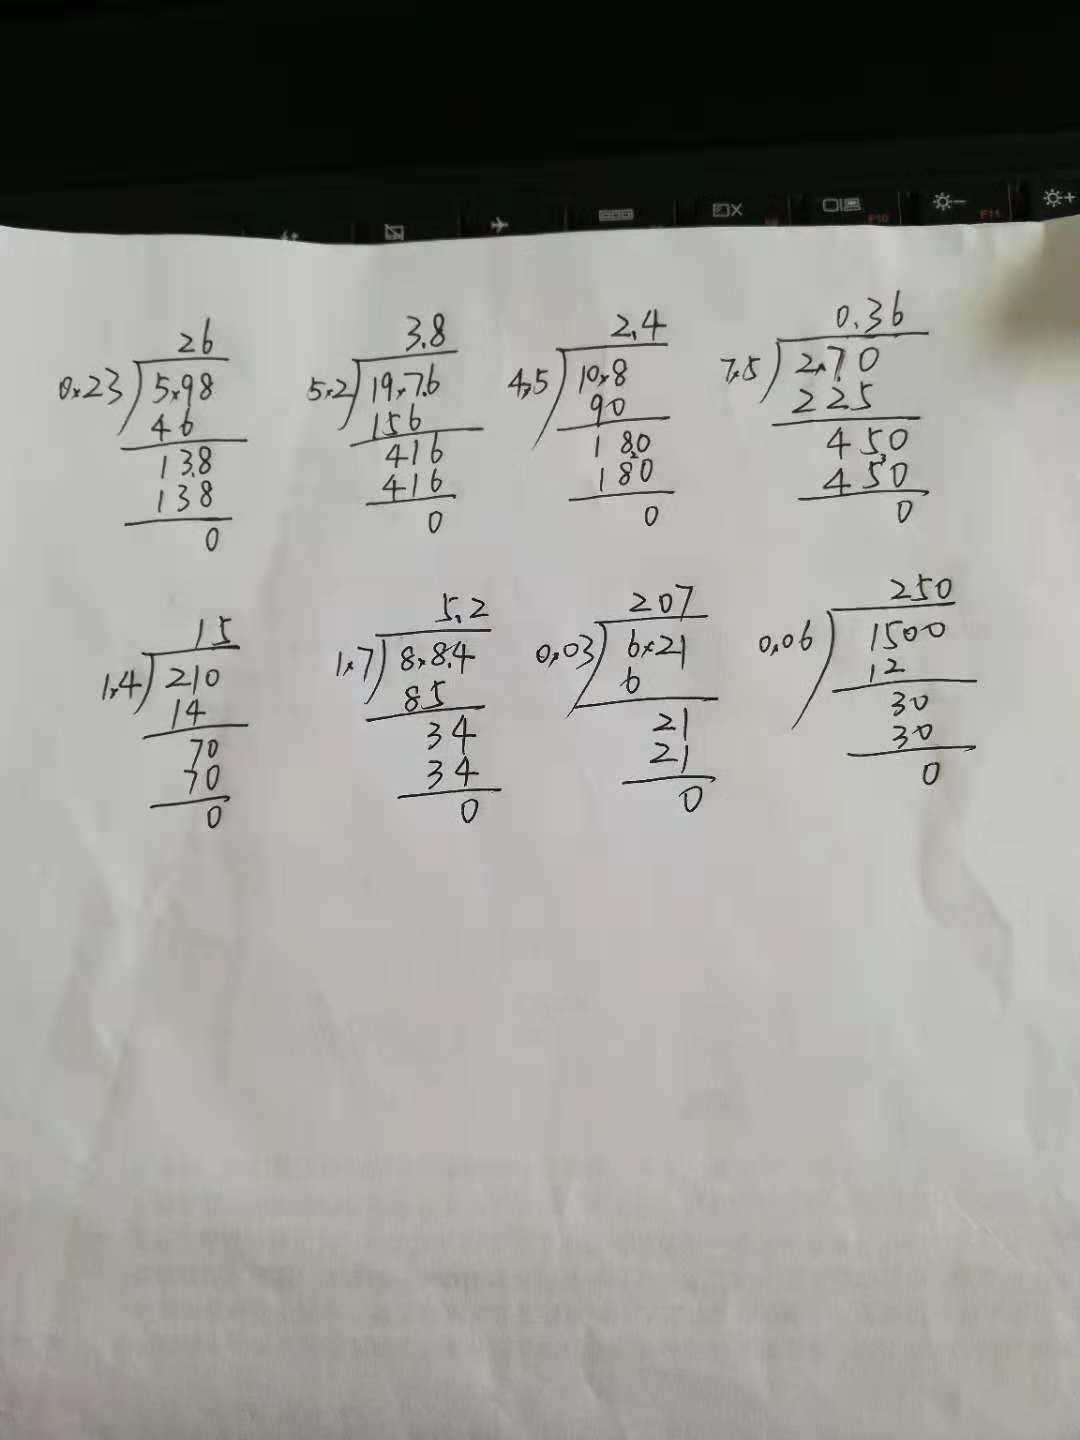 26
0.23 5.98
46
138
138
0
3.8
5.2 19.7.6
156
416
416
0
2.4
4.5 10.8
90
180
180
0
0.36
7.5 2.70
225
450
450
0
15
1.4 210
14
70
70
0
5.2
1.7 8.8.4
85
34
34
0
207
0.03 6.21
6
21
21
0
250
0.06 1500
12
30
30
0
F10
F11